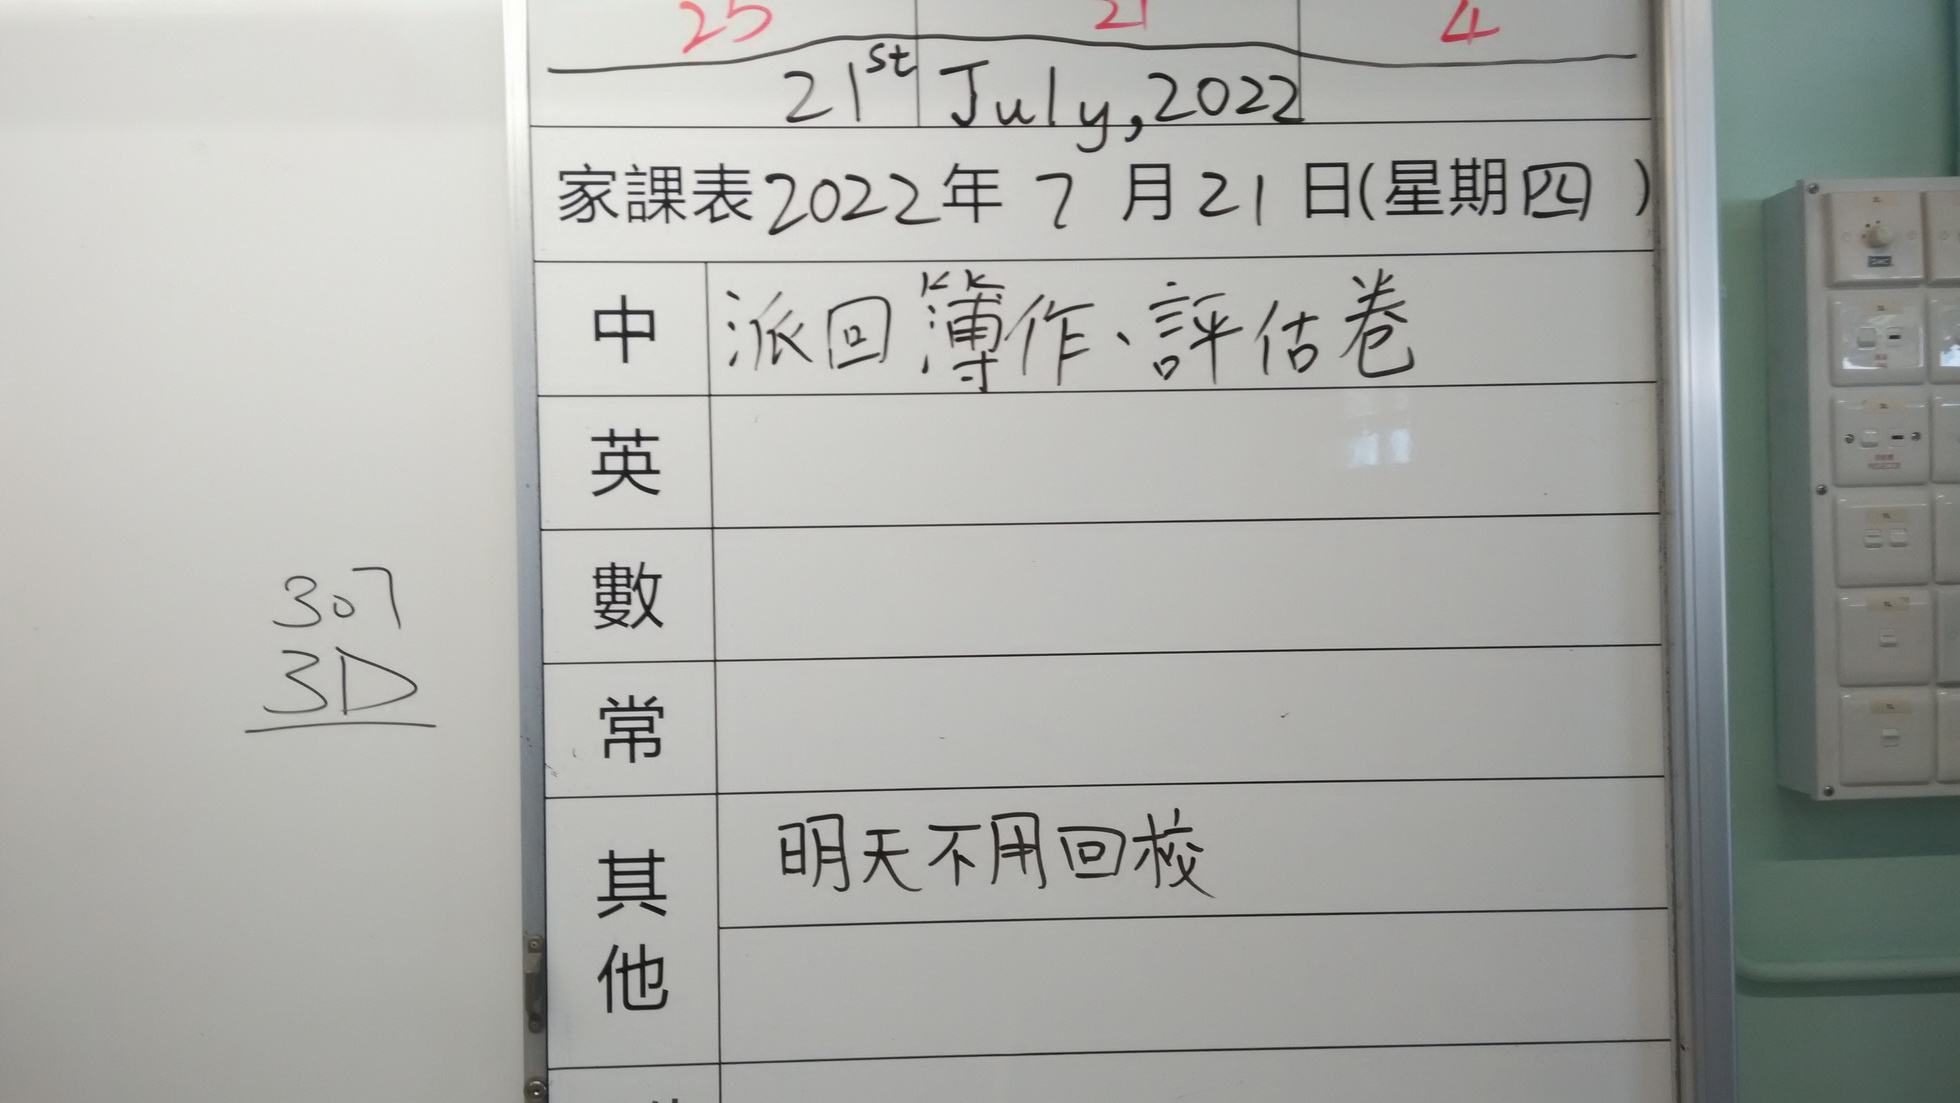 25 21 4
21st July, 2022
家課表2022年 7 月 21 日(星期四 )
中 派回簿作、評估卷
英
數
常
其他 明天不用回校
307
3D